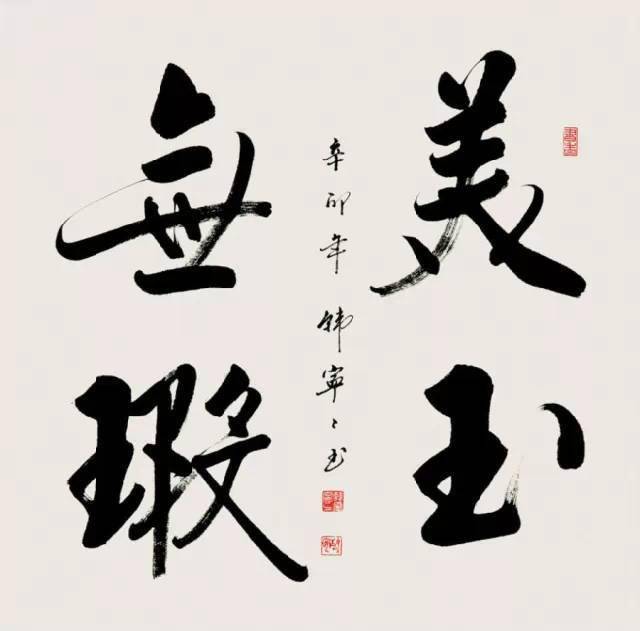 美玉
無瑕
辛卯年 韓寧〻书